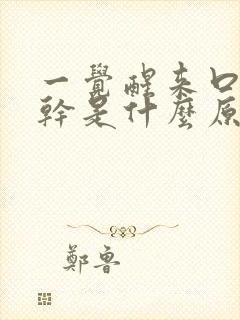 一覺醒來口
幹是什麼原
鄭魯